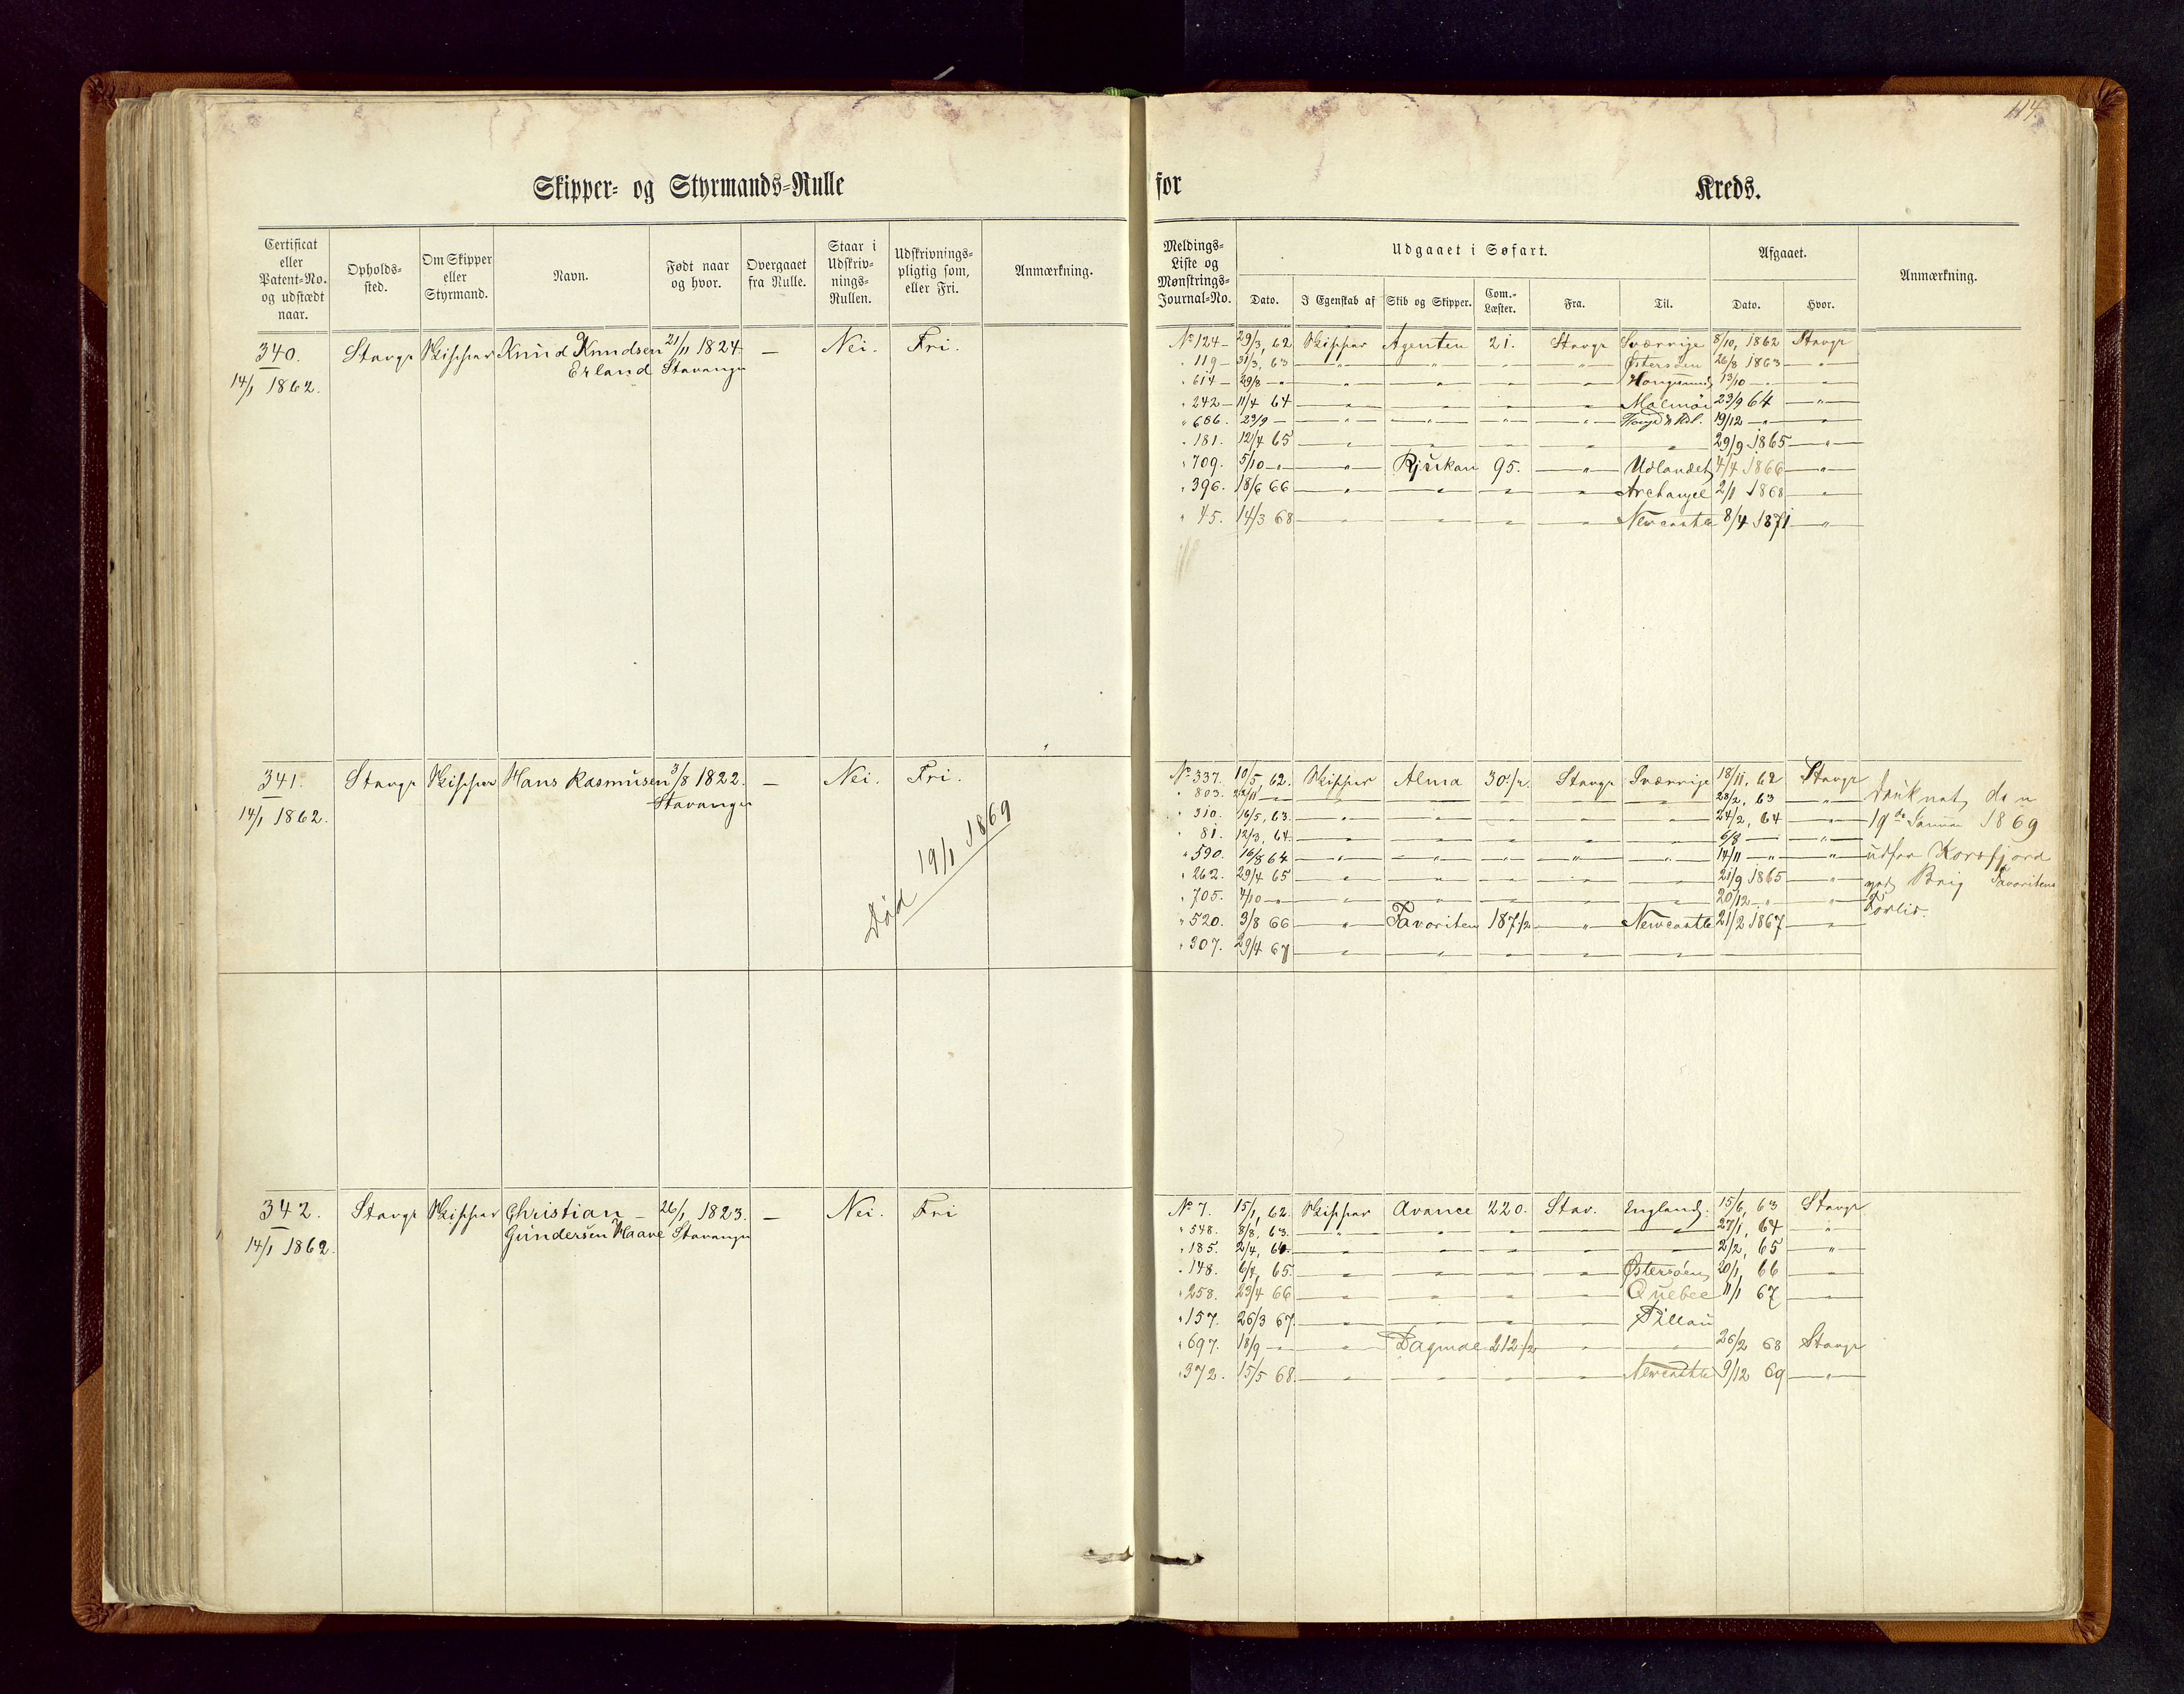 114.
Skipper- og Styrmands-Rulle
for Kreds.
Certificat eller Patent-No. og udstædt naar.
Opholds-sted.
Om Skipper eller Styrmand.
Navn.
Født naar og hvor.
Overgaaet fra Rulle.
Staar i Udskriv-nings-Rullen.
Udskrivnings-pligtig som, eller Fri.
Anmærkning.
Meldings-Liste og Mønstrings-Journal-No.
Udgaaet i Søfart.
Dato. I Egenskab af Skib og Skipper. Com.-Læster. Fra. Til.
Afgaaet.
Dato. Hvor.
Anmærkning.
340. Stavgr Skipper Knud Knudsen 21/11 1824 — Nei. Fri.
14/1 1862. Erland Stavanger
No 124 — 29/3, 62 Skipper Agenten 21. Stavgr Sværrige 8/10, 1862 Stavgr
" 119 — 31/3, 63 — " — " — " — " Østersøen 26/8 1863 — " —
" 614 — 29/8 — " — " — " — " — " 13/10 — " — " —
" 242 — 11/4 64 — " — " — " — " Malmöe 23/9 64 — " —
" 686. 23/9 — " — " — " — " 19/12 — " — " —
" 181. 12/4 65 — " — " — " — " — " 29/9 1865 — " —
" 709. 5/10 — " — " Rjukan 95. — " — Udlandet 4/4 1866 — " —
" 396. 18/6 66 — " — " — " — " Archangel 2/1 1868 — " —
" 45. 14/3 68 — " — " — " — " Newcastle 8/4 1871 — " —
341. Stavgr Skipper Hans Rasmusen 3/8 1822. — Nei. Fri.
14/1 1862. Stavanger
Død 19/1 1869
No 337. 10/5, 62. Skipper Alma 30 1/2. Stavgr Sværrige 18/11, 62 Stavgr
" 803. 22/11 — " — " — " — " — " 28/2, 63 — " —
" 310. 16/5, 63. — " — " — " — " — " 24/2, 64 — " —
" 81. 12/3, 64. — " — " — " — " — " 6/8 — " — " —
" 590. 16/8 64 — " — " — " — " — " 14/11 — " — " —
" 262. 29/4 65 — " — " — " — " — " 21/9 1865 — " —
" 705. 4/10 — " — " — " — " — " — " 20/12 — " — " —
" 520. 3/8 66 — " — Favoriten 187 1/2 — " — Newcastle 21/2 1867 — " —
" 307. 29/4 67 — " — " — " — " — " —
Druknet, den
19de Januar 1869
udfor Korsfjord
ved Brig Favoritens
Forlis.
342. Stavgr Skipper Christian — 26/1, 1823. — Nei. Fri
14/1 1862. Gundersen Haave Stavanger
No 7. 15/1, 62. Skipper Avance 220. Stav. England. 15/6, 63 Stavgr
" 548. 8/8, 63. — " — " — " — " — " 27/1, 64 — " —
" 185. 2/4, 64. — " — " — " — " — " 2/2, 65 — " —
" 148. 6/4, 65. — " — " — " — " Østersøen 20/1 66 — " —
" 258. 23/4 66 — " — " — " — " Quebec 11/1 67 — " —
" 157. 26/3 67. — " — " — " — " Pillau
" 697. 18/9 — " — " — Dagmar 212 1/2 — " — " 26/2 68 Stavgr
" 372. 15/5 68. — " — " — " — " Newcastle 9/12 69 — " —